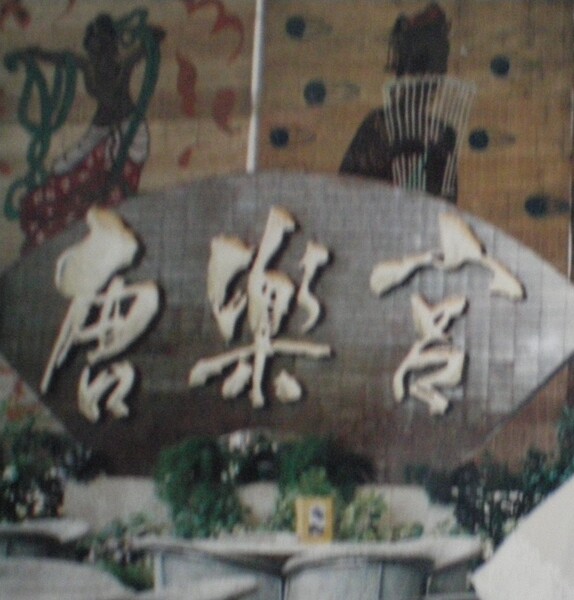 唐樂宮